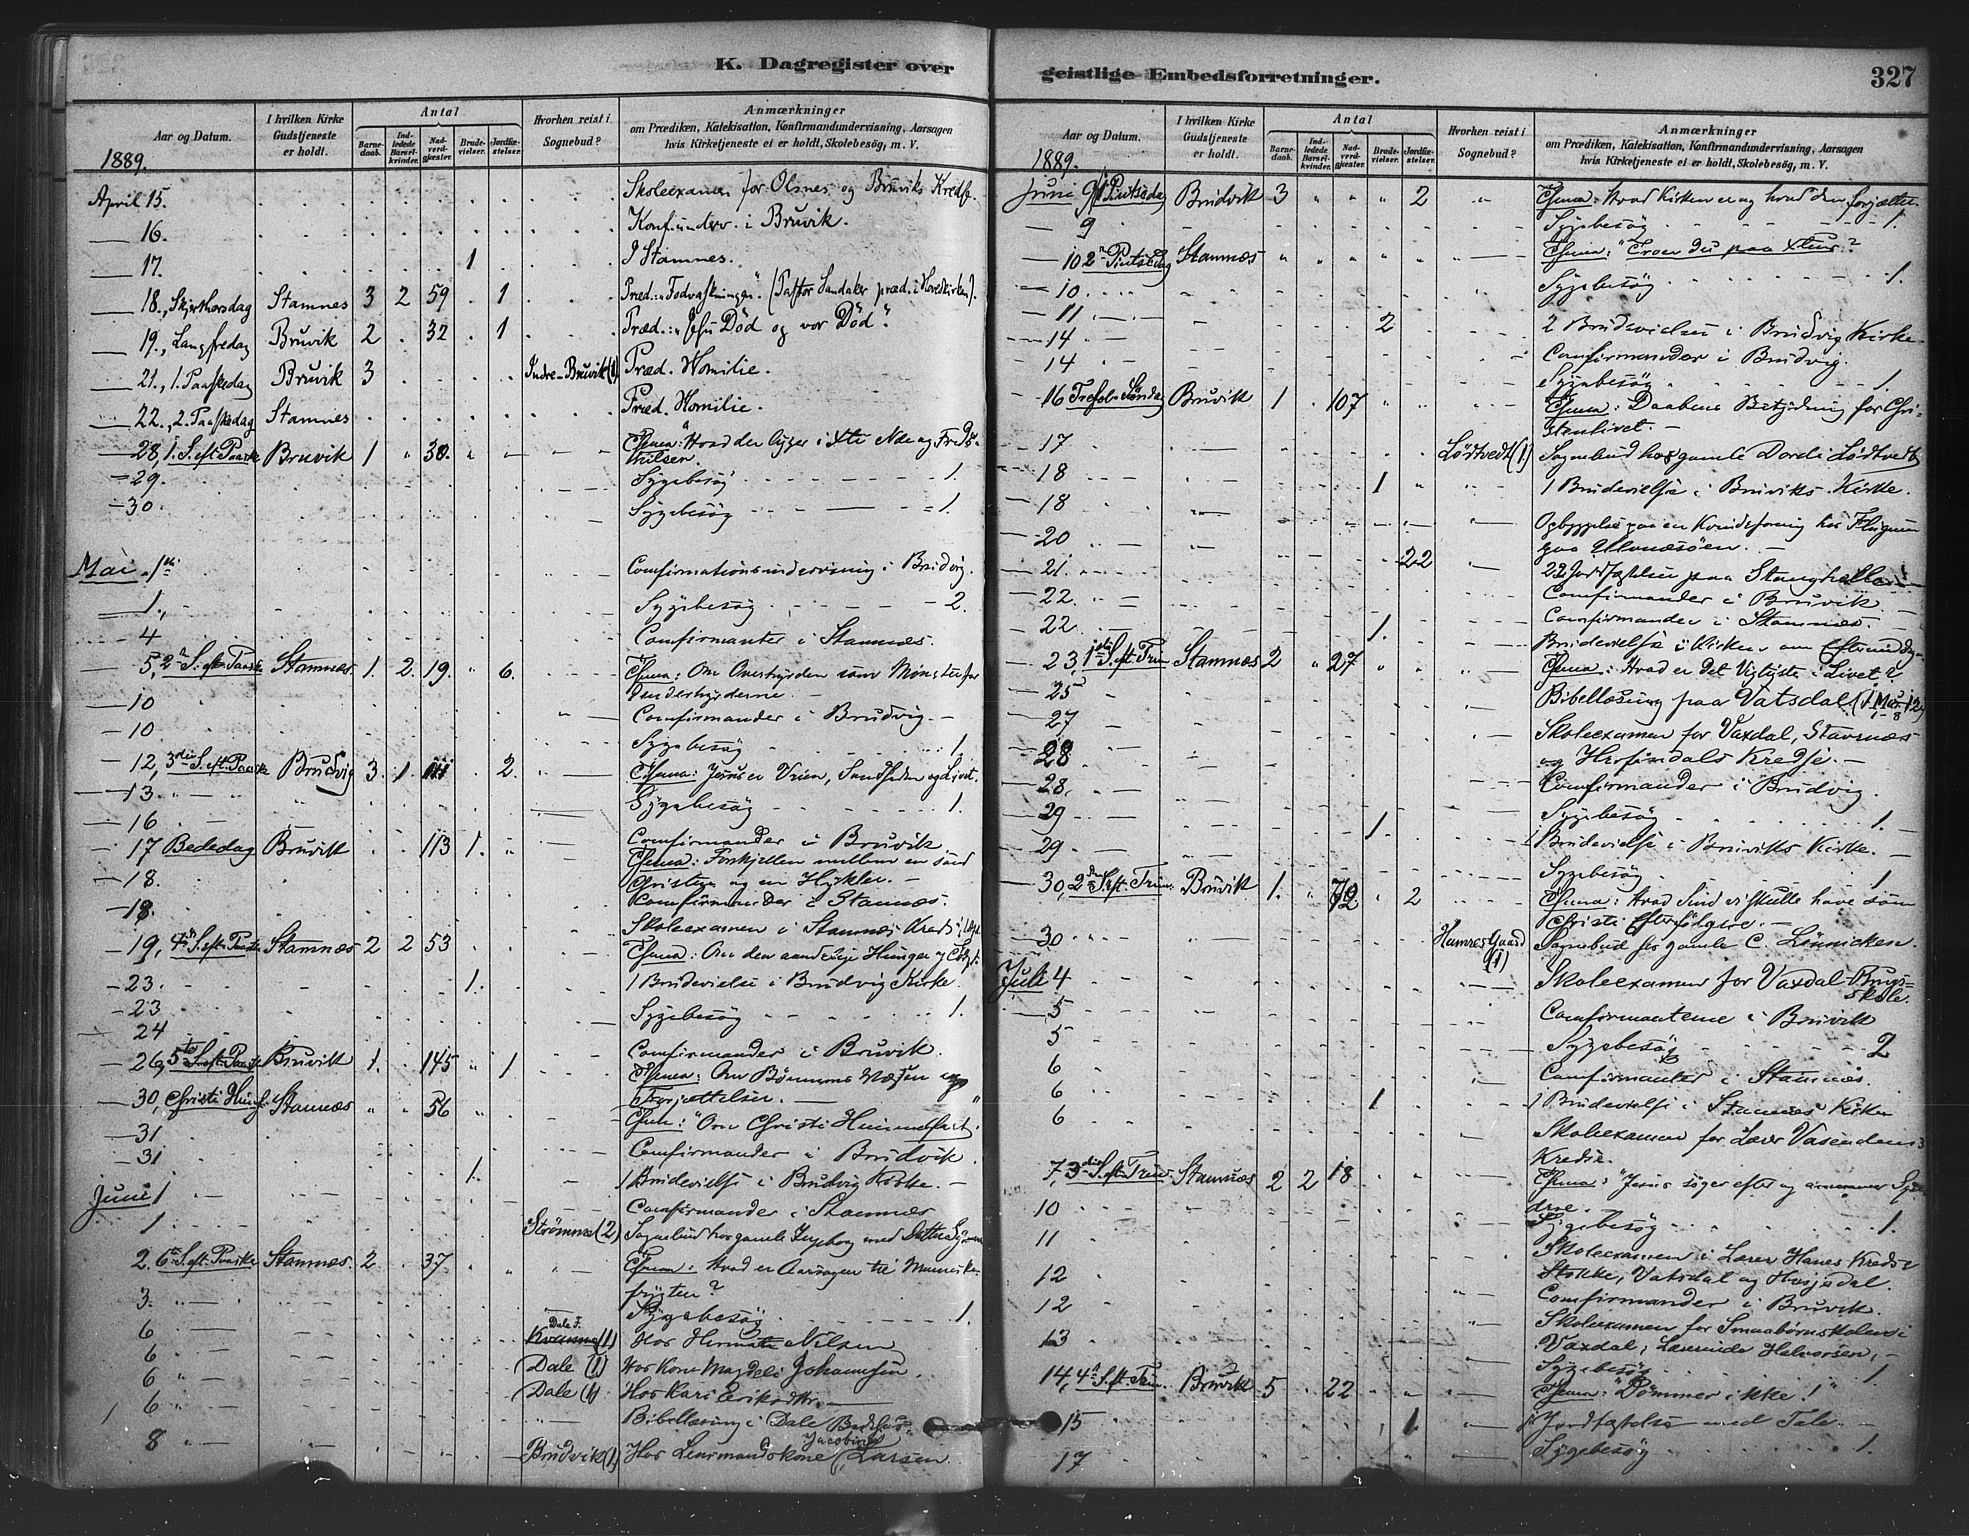 K. Dagregister over
Aar og Datum.
I hvilken Kirke Gudstjeneste er holdt.
Antal
Barnedaab.
Indledede Barselkvinder.
Nadverdgjæster.
Brudevielser.
Jordfæstelser.
Hvorhen reist i Sognebud?
Anmærkninger
om Prædiken, Katekisation, Konfirmandundervisning, Aarsagen
hvis Kirketjeneste ei er holdt, Skolebesøg, m. V.
1889.
April 15. Skoleexamen for Olsnes og Bruviks Kredse.
16. Konf.underv. i Bruvik.
17. 1 I Stamnes.
18., Skjærthorsdag Stamnes 3 2 59 1 Præd.: "Fodvaskningen". (Pastor Sandaker præd. i Hovedkirken).
19., Langfredag Bruvik 2 32 1 Præd.: "Jesu Død og vor Død".
21., 1. Paaskedag Bruvik 3 Indre-Bruvik (1) Præd. Homilie.
22., 2. Paaskedag Stamnes Præd. Homilie.
28, 1. S. eft. Paaske Bruvik 1 38. Thema: "Hvad der ligger i
29. Sygebesøg 1.
30. Sygebesøg 1.
Mai 1ste Comfirmationsundervisning i Brudvig.
1., Sygebesøg 2.
4 Comfirmanter i Stamnæs.
5, 2n S. eft. Paaske Stamnæs. 1. 2. 19. 6. Thema: Om Overhyrden som Mønster for
Underhyrderne.
10 Comfirmander i Brudvig.
10 Sygebesøg 1
12, 3die S. eft. Paaske Brudvig 3. 1. 111 2. Thema: Jesus er Veien, Sandheden og Livet.
13. Sygebesøg 1.
16 Comfirmander i Bruvik.
17 Bededag Bruvik 113 1. Thema: Forskjellen mellem en sand
Christen og en Hykler.
18. Comfirmander i Stamnæs.
18. Skoleexamen i Stamnæs Kreds
19, 4n S. eft. Paaske Stamnæs 2 2 53 Thema: Om den aandelige Hunger og
23. 1. 1 Brudevielse i Brudvig Kirke.
23 Sygebesøg 1.
24 Comfirmander i Bruvik.
26, 5te S. eft. Paaske Bruvik 1. 145 1 Thema: Om Bønnens Væsen og
Forjættelser.
30, Christi Himf. Stamnæs 56 Thema: "Om Christi Himmelfart.
31 Comfirmander i Brudvik.
31 1. 1 Brudevielse i Brudvig Kirke.
Juni 1 Comfirmander i Stamnæs
1 Strømme (2) Sognebud hos gamle Ingeborg med Datter
2. 6te S. eft. Paaske Stamnæs. 2 37 Thema: Hvad er Aarsagen til Menneske-
frygten?
3. Sygebesøg 1.
6 Dale F. (1) Hos Nilsen
6 Dale (1) Hos Kone Magdeli Johannsen.
6 Dale (1) Hos Kari Eriksdttr.
6 Bibellæsning i Dale Bedehus.
8 Brudvik (1) Hos Lensmandskone Jacobine Larsen
geistlige Embedsforretninger.
327
Aar og Datum.
I hvilken Kirke Gudstjeneste er holdt.
Antal
Barnedaab.
Indledede Barselkvinder.
Nadverdgjæster.
Brudevielser.
Jordfæstelser.
Hvorhen reist i Sognebud?
Anmærkninger
om Prædiken, Katekisation, Konfirmandundervisning, Aarsagen
hvis Kirketjeneste ei er holdt, Skolebesøg, m. V.
1889.
Juni 9 Pintsdag Brudvik 3 2 Thema: Hvad Kirken er og hvad den forjætter.
9 Sygebesøg 1.
10 2n Pintsedag Stamnæs Thema: "Troer du paa Xtus?
10 Sygebesøg 1.
11 2 2 Brudevielser i Brudvig Kirke.
14 Comfirmander i Brudvig.
14 Sygebesøg 1.
16 Trefol. Søndag Bruvik 1 107 Thema: Daabens Betydning for Chri-
stenlivet.
17 Lødtvedt (1) Sognebud hos gamle Dordi Lødtvedt
18 1 1 Brudevielse i Bruviks Kirke.
18 Opbyggelse paa en Kvindeforening hos
20
21. 22 22 Jordfæstelser paa Stanghelle
22. Comfirmander i Bruvik
22 Comfirmander i Stamnæs.
1. Brudevielse i Kirken om Eftermiddagen
23, 1ste S. eft. Trin Stamnæs 2 27 Thema: Hvad er det Vigtigste i Livet?
25 Bibellæsning paa Vatsdal
27 Skoleexamen for Vaxdal, Stavenæs
28 og Hesjedals Kredse.
28. Comfirmander i Brudvig.
29 Sygebesøg 1.
29. 1 1 Brudevielse i Bruviks Kirke.
Sygebesøg 1
30, 2den S. eft. Trin. Bruvik 1. 72 2 Thema: Hvad Sind vi skulle have som
Christi Efterfølgere.
30 Hamres Gaard (1) Sognebud for gamle C. Lünnicken.
Juli 4 Skoleexamen for Vaxdal Brugs-
skole.
5 Comfirmanterne i Bruvik
5 Sygebesøg 2
6 Comfirmanter i Stamnæs.
6 1 1 Brudevielse i Stamnæs Kirken
6 Skoleexamen for Lærer Vasendens
Kredse.
7, 3die S. eft. Trin. Stamnæs 2 2 18 Thema: "Jesus søger efter og
10 Sygebesøg 1.
11 Skoleexamen i Lærer Hanes Kredse
12 Stokke, Vatsdal og Hesjedal.
12 Comfirmander i Bruvik.
13 Skoleexamen for Smaabørnskolen i
Vaxdal, Lærerinde Halvorsen,
Sygebesøg 1
14, 4n S. eft. Trin. Bruvik 5 22 Thema: "Dømmer ikke!"
15 1 Jordfæstelse med Tale
17 Sygebesøg 1.